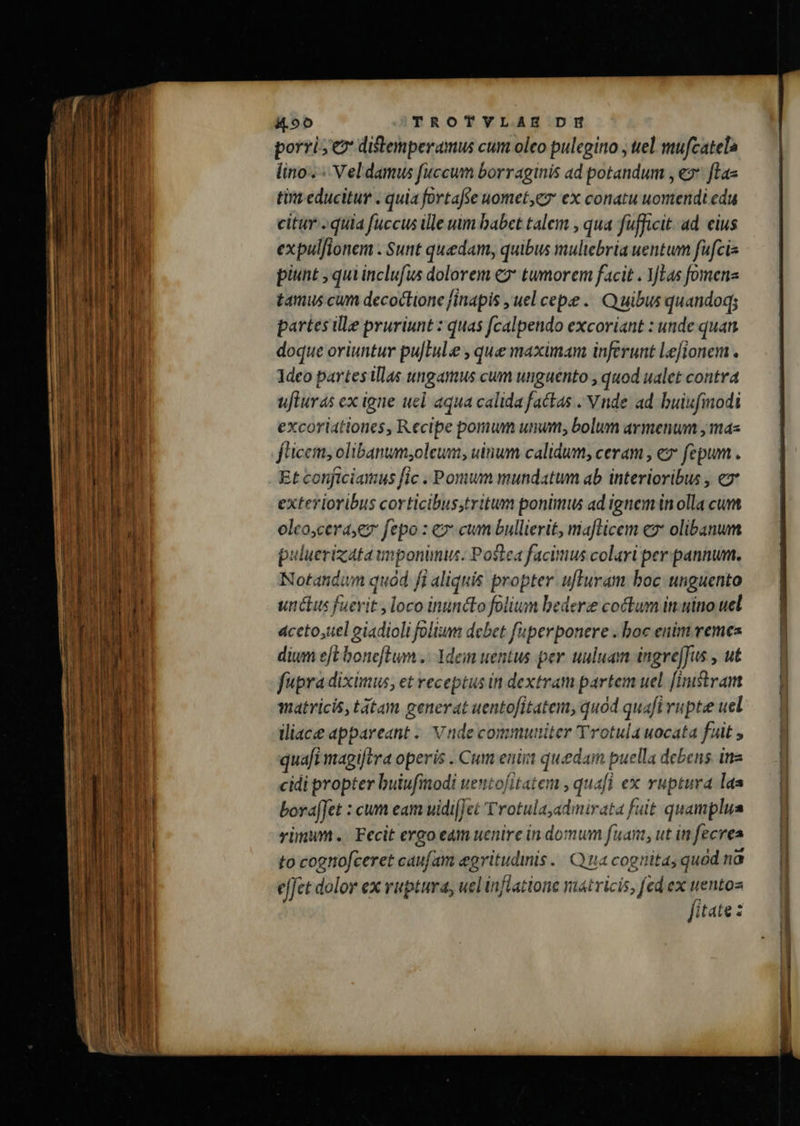 490 TROTVLAE DE
porri, & distemperamus cum oleo pulegino, uel muscatels
lino. Vel damus succum borraginis ad potandum, & sta=
tim educitur. quia fortasse uomet, & ex conatu uomendi edu
citur. quia succus ille uim habet talem, qua sufficit ad eius
expulsionem. Sunt quædam, quibus muliebria uentum susci=
piunt, qui inclusus dolorem & tumorem facit. Istas fomen=
tamus cum decoctione sinapis, uel cepæ. Quibus quandoq;
partes illæ pruriunt: quas scalpendo excoriant: unde quan
doque oriuntur pustulæ, quæ maximam inferunt lesionem.
Ideo partes illas ungamus cum unguento, quod ualet contra
usturas ex igne uel aqua calida factas. Vnde ad huiusmodi
excoriationes, Recipe pomum unum, bolum armenum, ma=
sticem, olibanum, oleum, uinum calidum, ceram, & sepum.
Et conficiamus sic. Pomum mundatum ab interioribus, &
exterioribus corticibus, tritum ponimus ad ignem in olla cum
oleo, cera, & sepo: & cum bullierit, masticem & olibanum
puluerizata imponimus. Postea facimus colari per pannum.
Notandum quòd si aliquis propter usturam hoc unguento
unctus fuerit, loco inuncto folium hederæ coctum in uino uel
aceto, uel giadioli folium debet superponere. hoc enim reme=
dium est honestum. Idem uentus per uuluam ingressus, ut
supra diximus, et receptus in dextram partem uel sinistram
matricis, tātam generat uentositatem, quòd quasi ruptæ uel
iliacæ appareant. Vnde communiter Trotula uocata fuit,
quasi magistra operis. Cum enim quædam puella debens in=
cidi propter huiusmodi uentositatem, quasi ex ruptura la=
borasset: cum eam uidisset Trotula, admirata fuit quamplu=
rimum. Fecit ergo eam uenire in domum suam, ut in secre=
to cognosceret causam ægritudinis. Qua cognita, quòd nō
esset dolor ex ruptura, uel inflatione matricis, sed ex uento=
sitate: